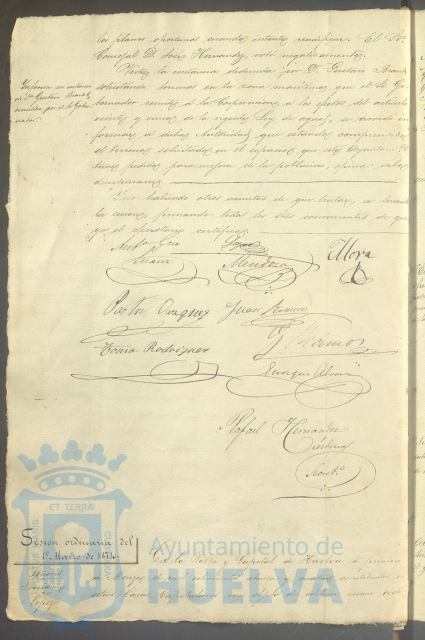 los planos oportunos cuando intente reedificar. El Sr.
Concejal D. José Hernandez, votó negativamente.
Vista la instancia deducida por D. Gustavo
solicitando terreno en la zona maritima que el Sr. Go-
bernador remite á la Corporacion á los efectos del articulo
veinte y cinco de la vigente Ley de aguas, se acordó in-
formar á dicha Autoridad que estando comprendido
el terreno solicitado en el espacio que este Ayuntº
tiene pedido para mejora de la poblacion, opina debe
desestimarse.
Y no habiendo otros asuntos de que tratar, se levantó
la sesion, firmando todos los Sres concurrentes de que
yo, el Secretario certifico.
Informe en instancia
de Don Gustavo
remitida por el Sr Gober-
nador
Mendoza
Mora
Pastor Vazquez
Juan Ramos
Tomás Rodriguez
G. Ramos
Enrique
Rafael Hernandez
Secretº
ET TERRA
Sesion ordinaria del
1º Marzo de 1874
Señores
Lopez
En la Villa y Capital de Huelva á primero
de Marzo de mil ochocientos setenta y cuatro, constituidos en
estas Casas Capitulares con objeto de celebrar
Ayuntamiento de
HUELVA